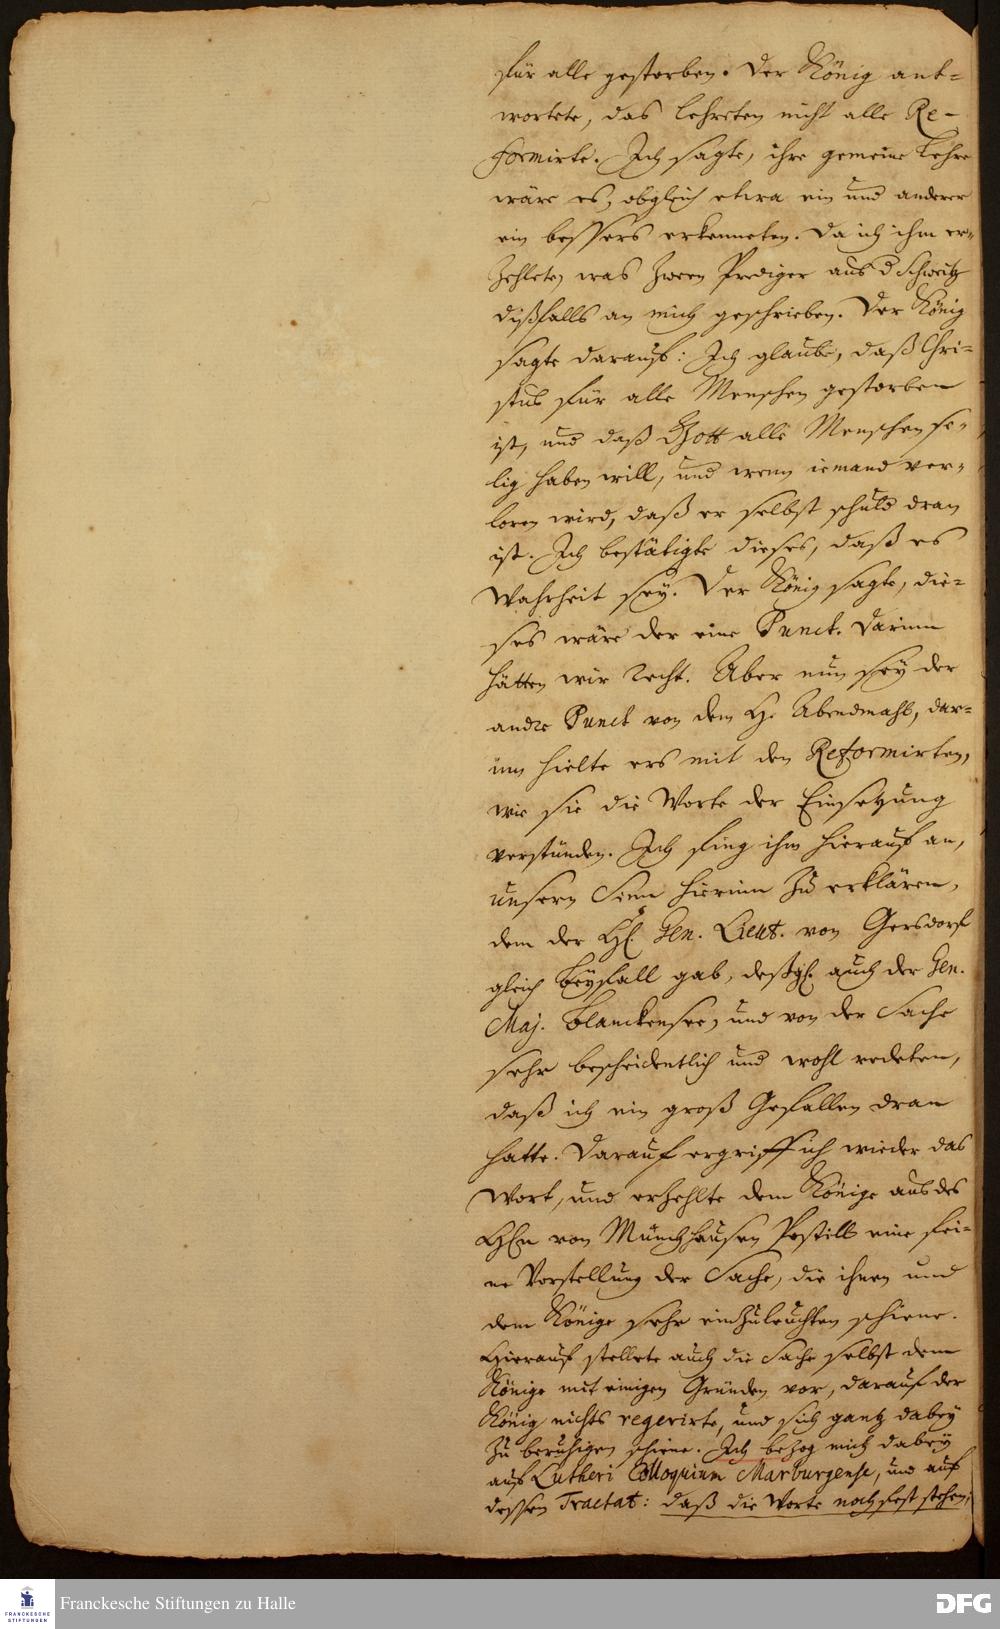 für alle gestorben. Der König ant-
wortete, das lehreten nicht alle Re-
formirte. Ich sagte, ihre gemeine Lehre
wäre es, obgleich etwa ein und anderer
ein bessers erkenneten. Da ich ihm er-
zehlete, was zween Prediger aus d Schweitz
dißfalls an mich geschrieben. Der König
sagte darauf: Ich glaube, daß Chri-
stus für alle Menschen gestorben
ist, und daß Gott alle Menschen se-
lig haben will, und wenn iemand ver-
loren wird, daß er selbst schuld dran
ist. Ich bestätigte dieses, daß es
Wahrheit sey. Der König sagte, die-
ses wäre der eine Punct. Darinn
hätten wir Recht. Aber nun sey der
andre Punct von dem H. Abendmahl, dar-
inn hielte ers mit den Reformirten,
wie sie die Worte der Einsetzung
verstünden. Ich fing ihm hierauf an,
unsern Sinn hierinn zu erklären,
dem der H. Gen. Lieut. von Gersdorf
gleich Beyfall gab, deßgl. auch der Gen.
Maj. Blanckensee, und von der Sache
sehr bescheidentlich und wohl redeten,
daß ich ein groß Gefallen dran
hatte. Darauf ergriff ich wieder das
Wort, und erzehlte dem Könige aus des
HEn von Münchhausen Postill eine fei-
ne Vorstellung der Sache, die ihnen und
dem Könige sehr einzuleuchten schiene.
Hierauf stellete auch die Sache selbst dem
Könige mit einigen Gründen vor, darauf der
König nichts regerirte, und sich gantz dabey
zu beruhigen schiene. Ich bezog mich dabey
auf Lutheri Colloquium Marburgense, und auf
dessen Tractat: daß die Worte noch fest stehen;
FRANCKESCHE STIFTUNGEN
Franckesche Stiftungen zu Halle
DFG